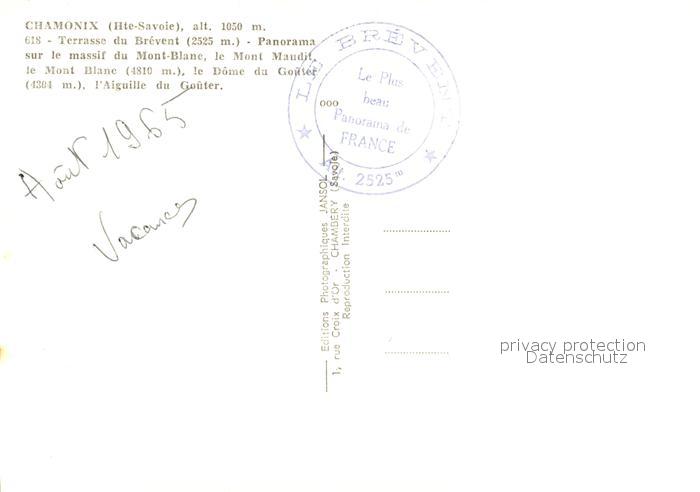 CHAMONIX (Hte-Savoie), alt. 1050 m.
618 - Terrasse du Brévent (2525 m.) - Panorama
sur le massif du Mont-Blanc, le Mont Maudit,
le Mont Blanc (4810 m.), le Dôme du Goûter
(4304 m.), l'Aiguille du Goûter.
LE BRÉVENT
Le Plus
beau
Panorama de
FRANCE
2525 m
Août 1965
Vacances
Editions Photographiques JANSOL
1, rue Croix d'Or - CHAMBERY (Savoie)
Reproduction Interdite
privacy protection
Datenschutz